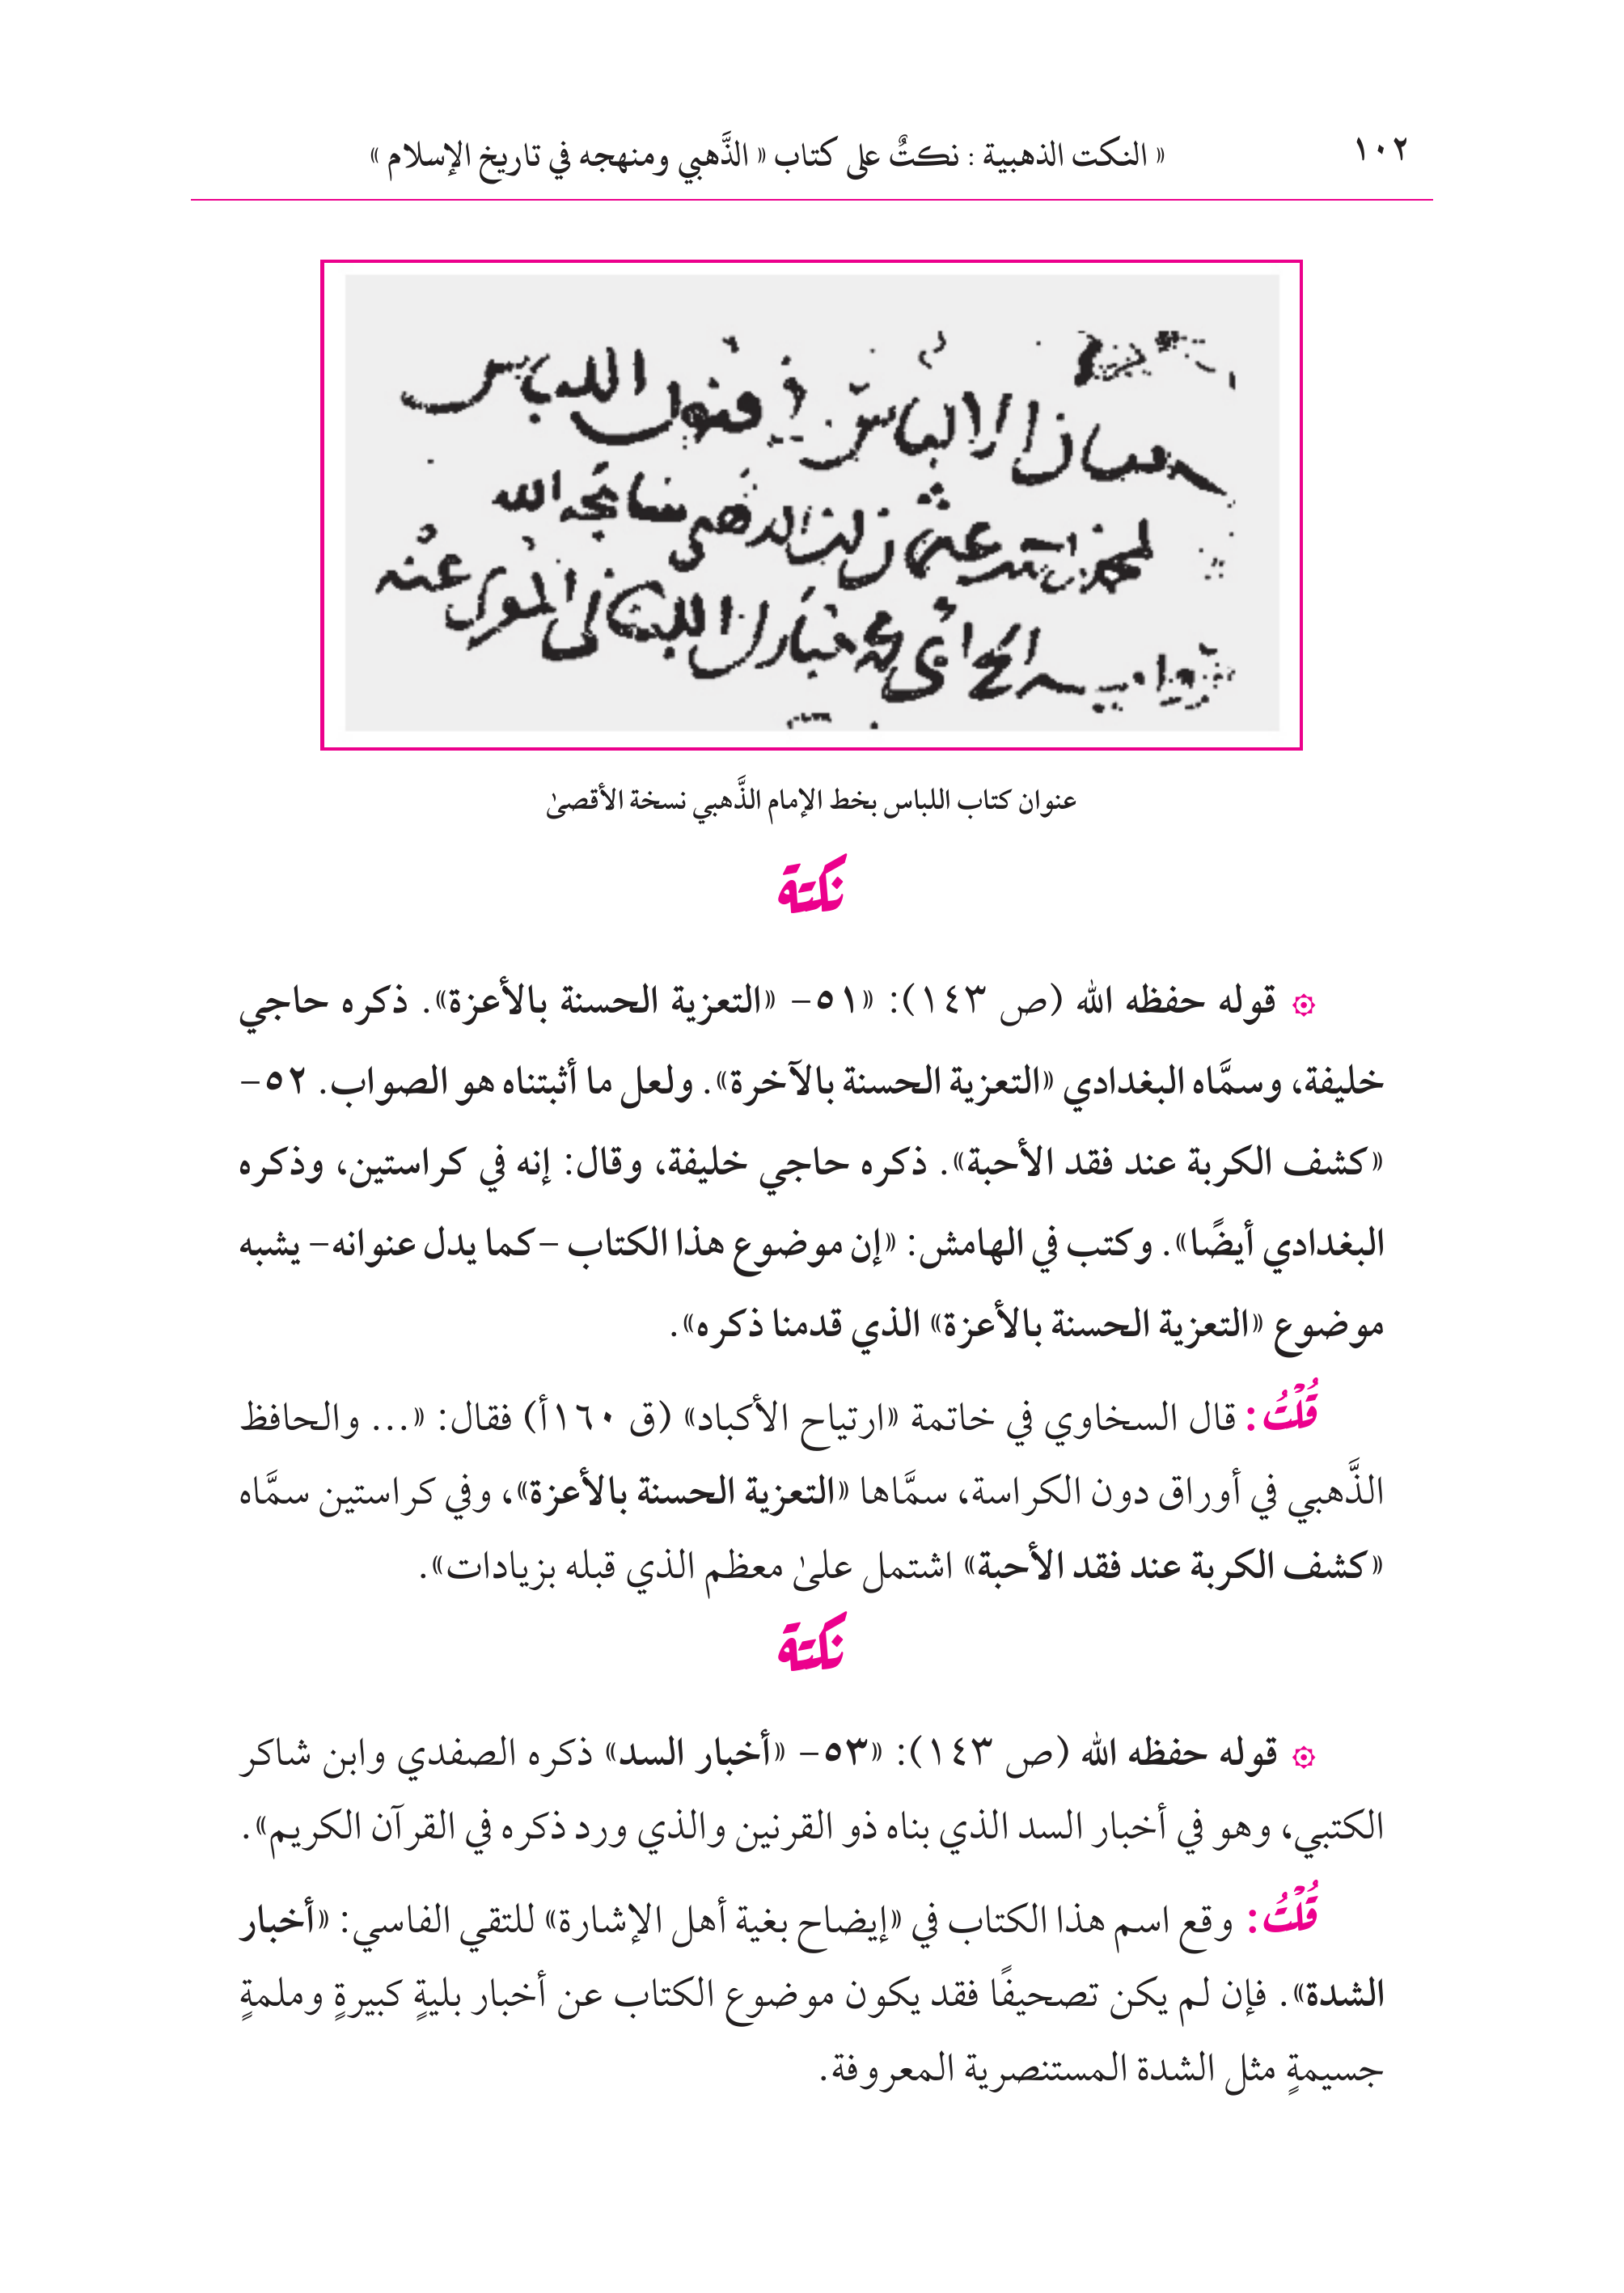 ١٠٢
« النكت الذهبية : نكتٌ على كتاب « الذَّهبي ومنهجه في تاريخ الإسلام »
الالباس في فنون اللباس
الذهبي سامحه الله
عنه
عنوان كتاب اللباس بخط الإمام الذَّهبي نسخة الأقصىٰ
نكتة
۞ قوله حفظه الله (ص ١٤٣): «٥١- «التعزية الحسنة بالأعزة». ذكره حاجي
خليفة، وسمَّاه البغدادي «التعزية الحسنة بالآخرة». ولعل ما أثبتناه هو الصواب. ٥٢-
«كشف الكربة عند فقد الأحبة». ذكره حاجي خليفة، وقال: إنه في كراستين، وذكره
البغدادي أيضًا». وكتب في الهامش: «إن موضوع هذا الكتاب -كما يدل عنوانه- يشبه
موضوع «التعزية الحسنة بالأعزة» الذي قدمنا ذكره».
قُلْتُ: قال السخاوي في خاتمة «ارتياح الأكباد» (ق ١٦٠أ) فقال: «... والحافظ
الذَّهبي في أوراق دون الكراسة، سمَّاها «التعزية الحسنة بالأعزة»، وفي كراستين سمَّاه
«كشف الكربة عند فقد الأحبة» اشتمل علىٰ معظم الذي قبله بزيادات».
نكتة
۞ قوله حفظه الله (ص ١٤٣): «٥٣- «أخبار السد» ذكره الصفدي وابن شاكر
الكتبي، وهو في أخبار السد الذي بناه ذو القرنين والذي ورد ذكره في القرآن الكريم».
قُلْتُ: وقع اسم هذا الكتاب في «إيضاح بغية أهل الإشارة» للتقي الفاسي: «أخبار
الشدة». فإن لم يكن تصحيفًا فقد يكون موضوع الكتاب عن أخبار بليةٍ كبيرةٍ وملمةٍ
جسيمةٍ مثل الشدة المستنصرية المعروفة.